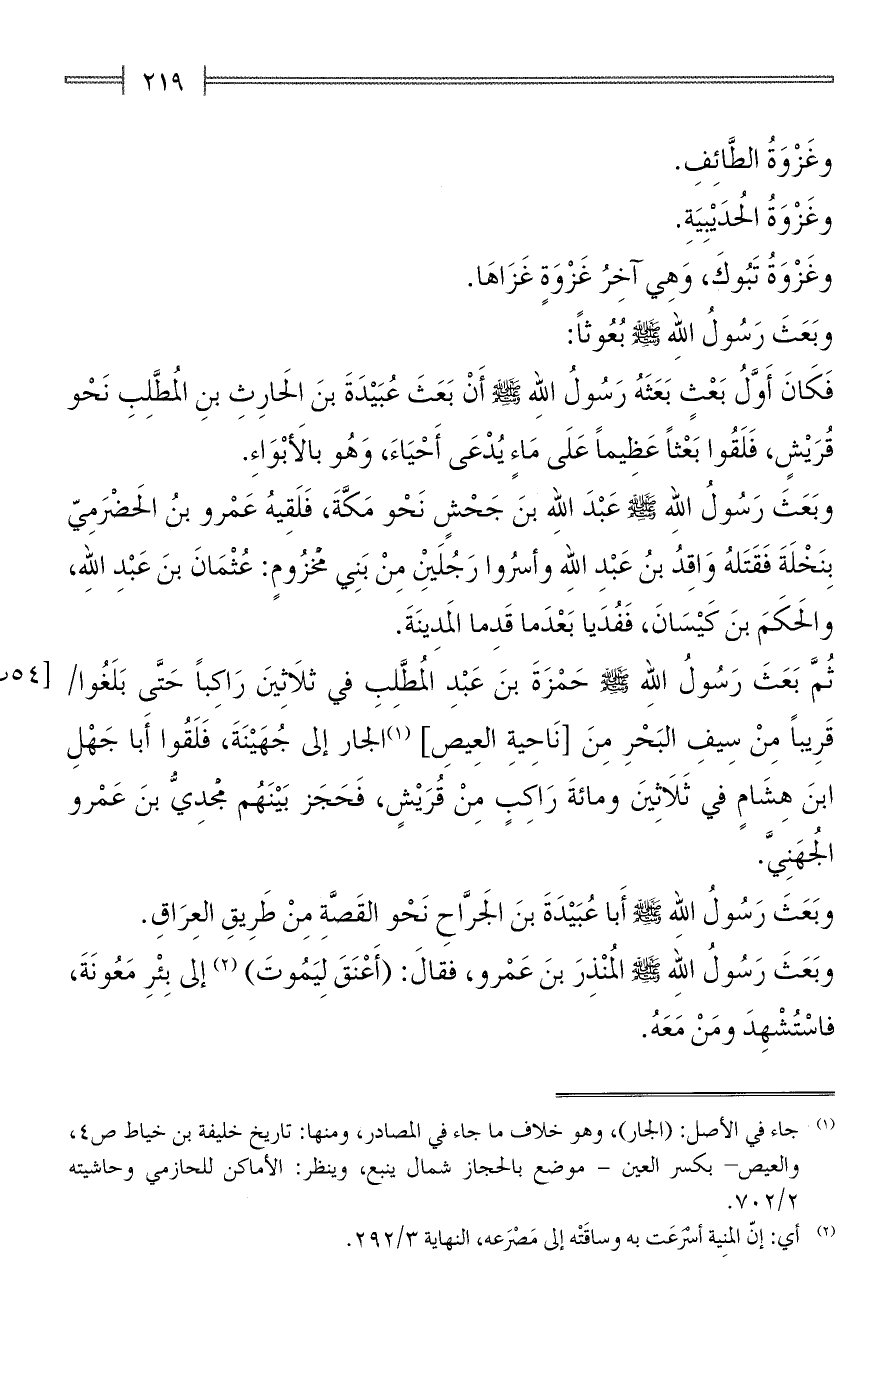 ٢١٩
وغَزْوَةُ الطَّائِفِ.
وغَزْوَةُ الحُدَيْبِيَةِ.
وغَزْوَةُ تَبُوكَ، وَهِي آخِرُ غَزْوَةٍ غَزَاهَا.
وبَعَثَ رَسُولُ اللهِ ﷺ بُعُوثاً:
فَكَانَ أَوَّلُ بَعْثٍ بَعَثَهُ رَسُولُ اللهِ ﷺ أَنْ بَعَثَ عُبَيْدَةَ بنَ الحَارِثِ بنِ المُطَّلِبِ نَحْو
قُرَيْشٍ، فَلَقُوا بَعْثاً عَظِيماً عَلَى مَاءٍ يُدْعَى أَحْيَاءَ، وَهُو بالأَبْوَاءِ.
وبَعَثَ رَسُولُ اللهِ ﷺ عَبْدَ اللهِ بنَ جَحْشٍ نَحْو مَكَّةَ، فَلَقِيهُ عَمْرو بنُ الحَضْرَمِيّ
بِنَخْلَةَ فَقَتَلهُ وَاقِدُ بنُ عَبْدِ اللهِ وأسرُوا رَجُلَينْ مِنْ بَنِي مَخْزُومٍ: عُثْمَانَ بنَ عَبْدِ اللهِ،
والحَكَمَ بنَ كَيْسَانَ، فَفُدَيا بَعْدَما قَدِما المَدِينَةَ.
ثُمَّ بَعَثَ رَسُولُ اللهِ ﷺ حَمْزَةَ بنَ عَبْدِ المُطَّلِبِ في ثلاثينَ رَاكِباً حَتَّى بَلَغُوا/ [٥٤ب
قَرِيباً مِنْ سِيفِ البَحْرِ مِنَ [نَاحِيةِ العِيصِ] (١)الجار إلى جُهَيْنَةَ، فَلَقُوا أبا جَهْلِ
ابنَ هِشَامٍ في ثَلَاثِينَ ومائةَ رَاكِبٍ مِنْ قُرَيْشٍ، فَحَجَز بَيْنَهُم مَجْديُّ بنَ عَمْرو
الجُهَنِيَّ.
وبَعَثَ رَسُولُ اللهِ ﷺ أَبا عُبَيْدَةَ بنَ الجَرَّاحِ نَحْو القَصَّةِ مِنْ طَرِيقِ العِرَاقِ.
وبَعَثَ رَسُولُ اللهِ ﷺ المُنْذِرَ بنَ عَمْرو، فقالَ: (أَعْنَقَ لِيَمُوتَ) (٢) إلى بِئْرِ مَعُونَةَ،
فاسْتُشْهِدَ ومَنْ مَعَهُ.
(١) جاء في الأصل: (الجار)، وهو خلاف ما جاء في المصادر، ومنها: تاريخ خليفة بن خياط ص٤،
والعيص– بكسر العين – موضع بالحجاز شمال ينبع، وينظر: الأماكن للحازمي وحاشيته
٧٠٢/٢.
(٢) أي: إنّ المَنِية أَسْرَعَت به وساقَتْه إلى مَصْرَعه، النهاية ٢٩٢/٣.